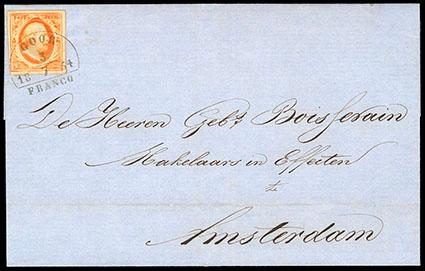 GOOR
3
18 7 54
FRANCO
De Heeren Gebr. Boissevain
Makelaars in Effecten
te
Amsterdam